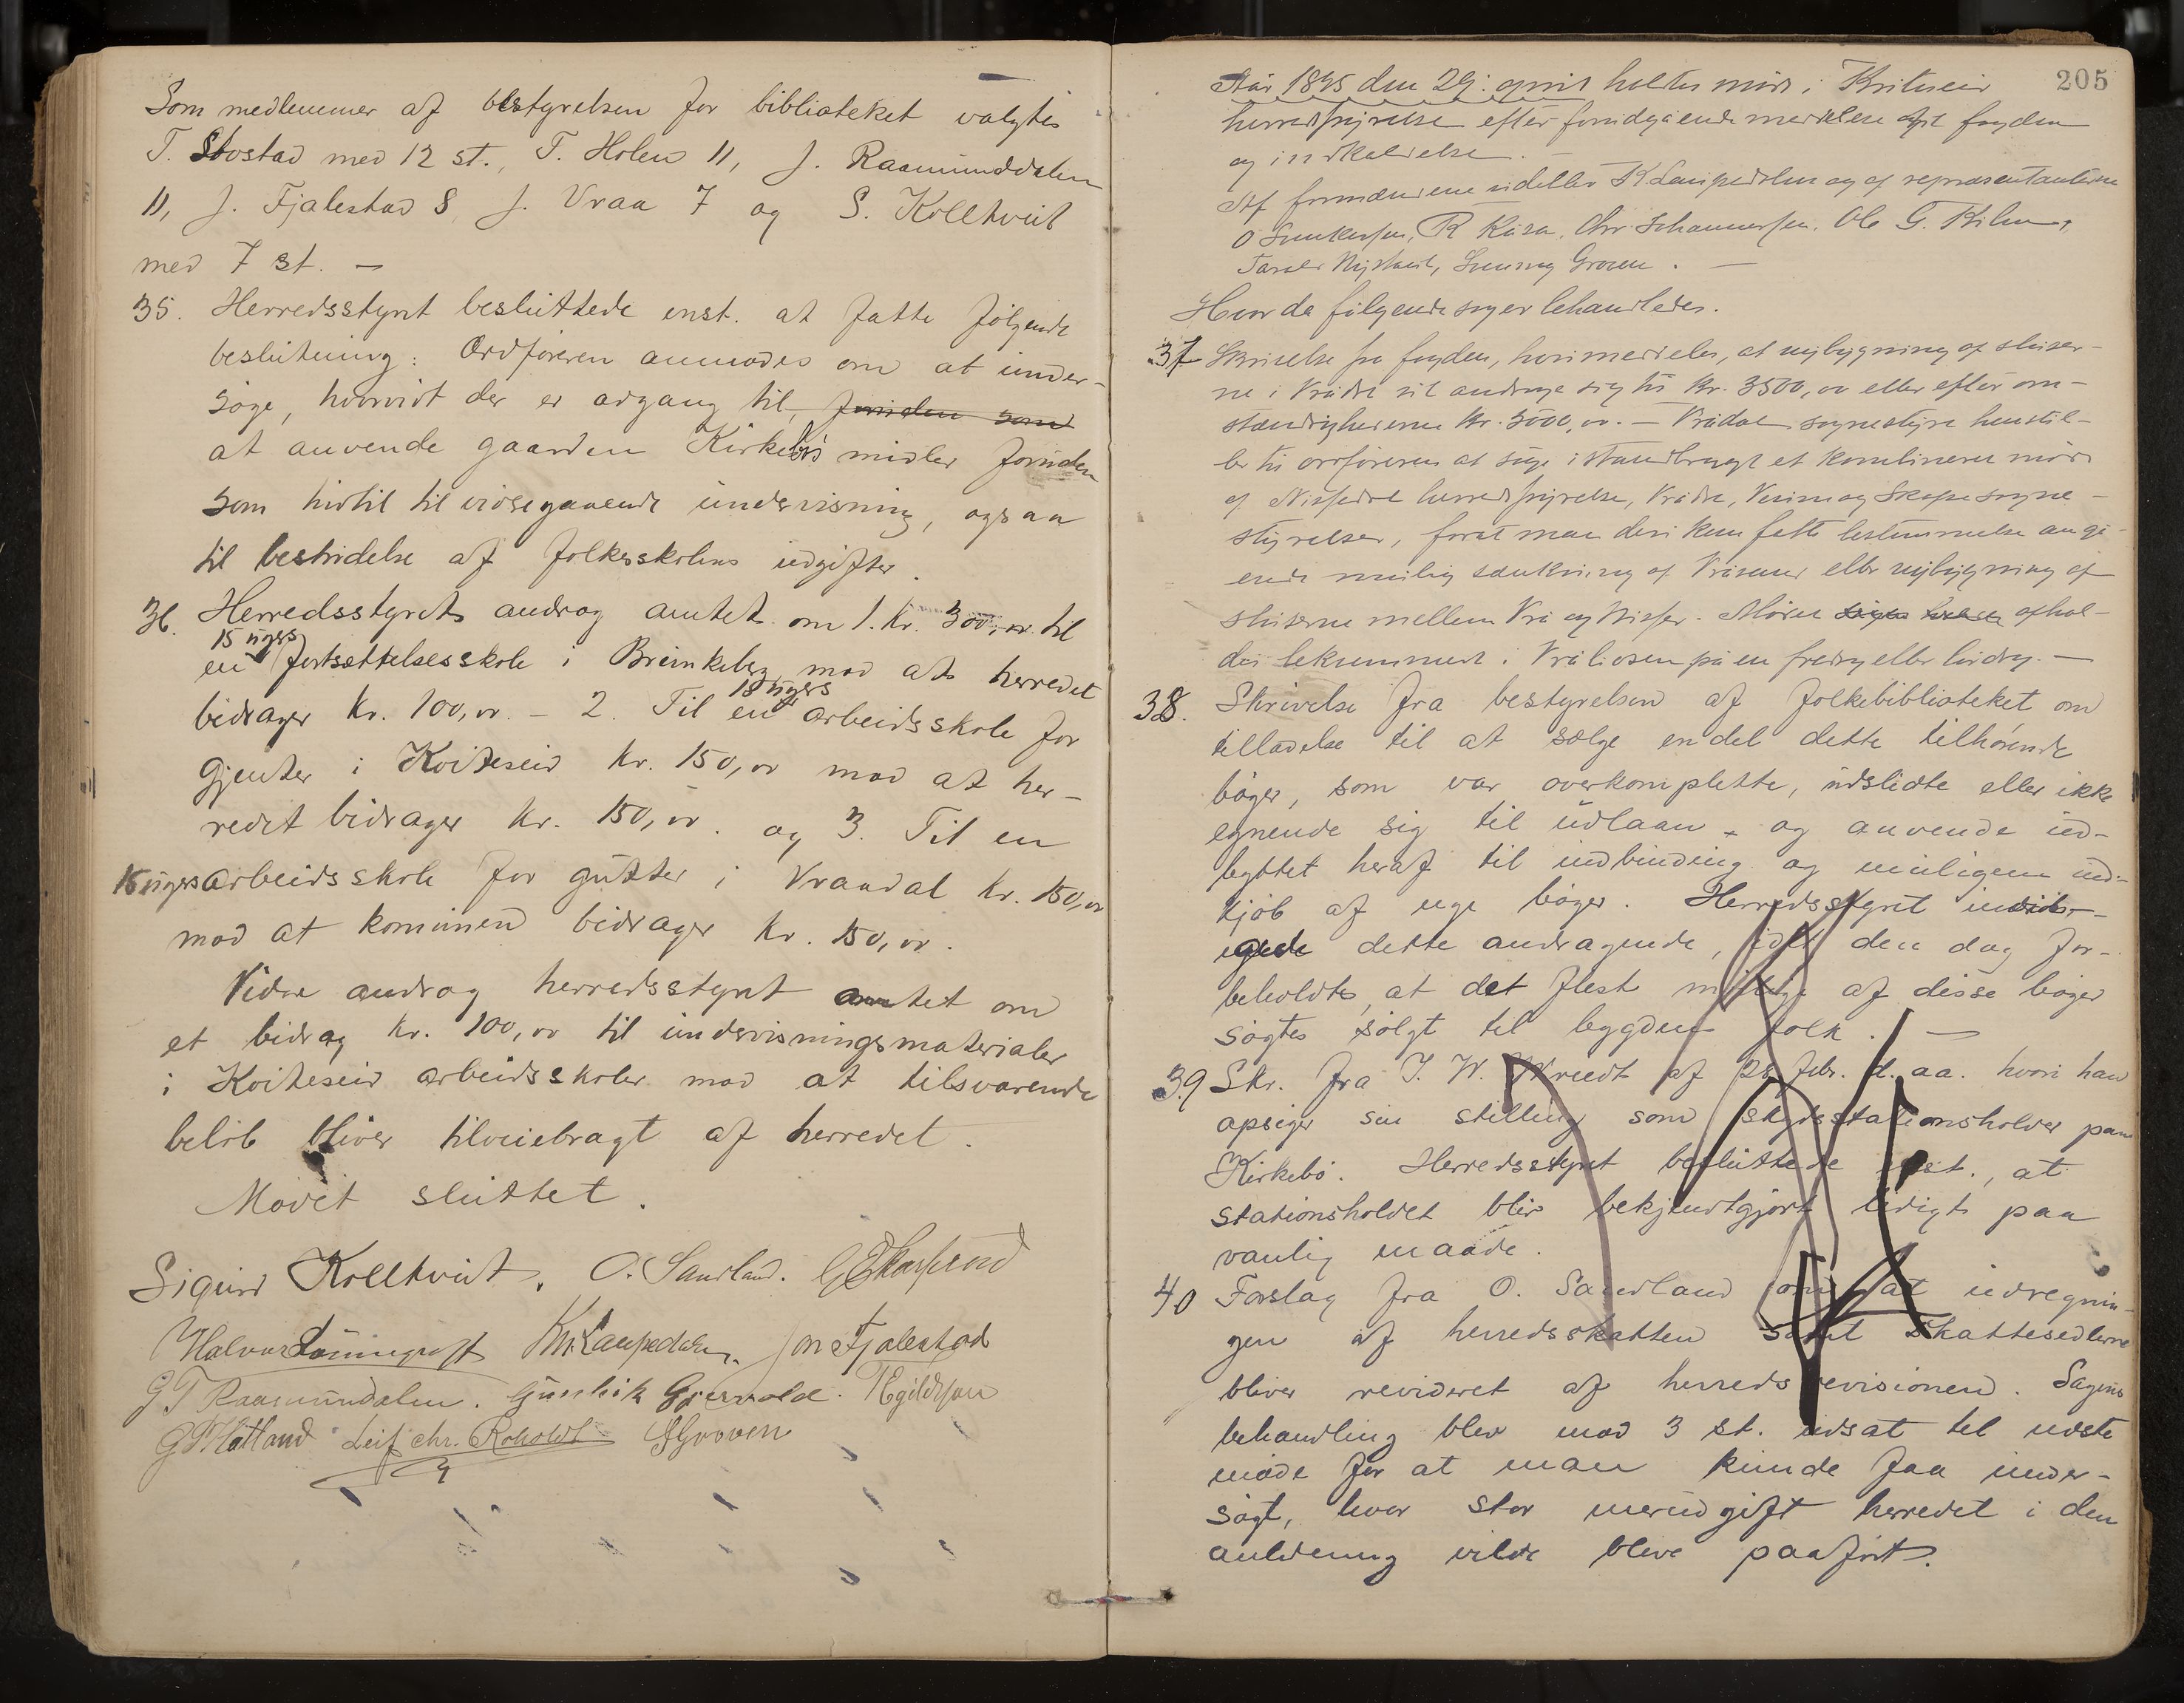 Som medlemmer af bestyrelsen for biblioteket valgtes
T. Stostad med 12 st., T. Holen 11, J. Raamunddalen
11, J. Fjalestad 8, J. Vraa 7 og S. Kolltveit
med 7 st. —
35. Herredsstyret besluttede enst. at fatte følgende
beslutning: Ordføreren anmodes om at under-
søge, hvorvidt der er adgang til, foruden som
at anvende gaarden Kirkebøs midler foruden
som hidtil til videregaaende undervisning, ogsaa
til bestridelse af folkeskolens udgifter.
36. Herredsstyret androg amtet om 1. Kr. 300,00 til
15 ugers
en fortsættelsesskole i Brunkeberg mod at herredet
bidrager Kr. 100,00. – 2. Til en 18 ugers arbeidsskole for
Gjenter i Kviteseid Kr. 150,00 mod at her-
redet bidrager Kr. 150,00. og 3. Til en
15 ugers arbeidsskole for gutter i Vraadal Kr. 150,00
mod at kommunen bidrager Kr. 150,00.
Videre androg herredsstyret amtet om
et bidrag Kr. 100,00 til undervisningsmaterialer
i Kviteseid arbeidsskoler mod at tilsvarende
beløb bliver tilveiebragt af herredet.
Mødet sluttet.
Sigurd Kolltveit. O. Sandland.
Halvor Lønnegraff Kn. Laupedalen. Jon Fjalestad
G T Raamundalen. Gunleik Gjervold. T Egildsson
G Hatland Leif Chr. Roholdt S Groven
205
Aar 1895 den 29. april holdtes møde i Kviteseid
herredsstyrelse efter forudgående meddelelse til fogden
og indkaldelse. —
Af formændene uidebley K Laupedalen og af repræsentanterne
O Sunkersen, R Kåsa, Chr Johannessen, Ole G. Kilen,
Tarald Nystad, Sveinung Groven. —
Hvor da følgende sager behandledes.
37 Skrivelse fra fogden, hvori meddeles, at nybygning af sluser-
ne i Vrådal vil andrage sig til Kr. 3500,00 eller efter om-
stændighederne Kr. 5000,00. — Vrådal sognestyre henstil-
ler til ordføreren at søge istandbragt et kombineret møde
af Nissedal herredsstyrelse, Vrådal, Veum og Skafse sogne-
styrelser, forat man deri kan fatte bestemmelse angå-
ende mulig sænkning af Vråvand eller nybygning af
sluserne mellem Vrå og Nisser. Mødet søges afhol-
des i Vråliosen på en fredag eller lørdag. —
38. Skrivelse fra bestyrelsen af folkebiblioteket om
tilladelse til at sælge endel dette tilhørende
bøger, som var overkomplette, udslidte eller ikke
egnende sig til udlaan – og anvende ud-
byttet heraf til indbinding og muligens ind-
kjøb af nye bøger. Herredsstyret indvil-
gede dette andragende, idet den dog for-
beholdtes, at det flest mulige af disse bøger
søgtes solgt til bygdens folk. —
39 Skr. fra T. W. Wreedt af 28 febr. d. aa. hvori han
opsiger sin stilling som skydsstationsholder paa
Kirkebø. Herredsstyret besluttede enst., at
stationsholdet blir bekjendtgjort ledigt paa
vanlig maade.
40 Forslag fra O. Sandland om at udregnin-
gen af herredsskatten samt skattesedlerne
bliver revideret af herredsrevisionen. Sagens
behandling blev mod 3 st. udsat til næste
møde for at man kunde faa under-
søgt, hvor stor merudgift herredet i den
anledning vilde blive paaført.